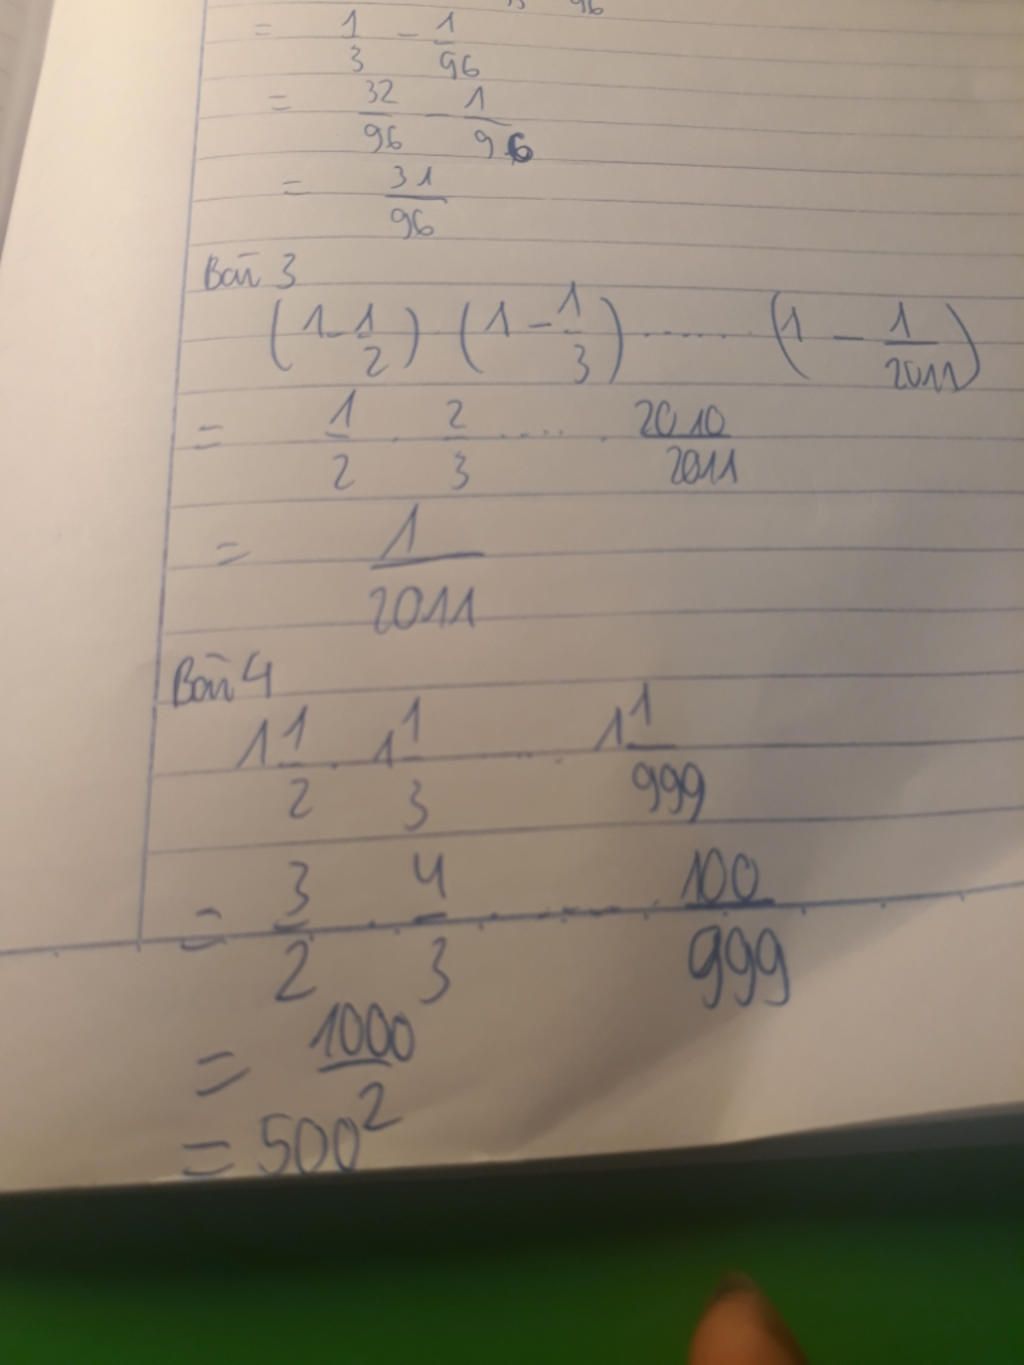 96
= 1/3 - 1/96
= 32/96 - 1/96
= 31/96
Bài 3
(1 - 1/2) (1 - 1/3) ...... (1 - 1/2011)
= 1/2 . 2/3 ..... . 2010/2011
= 1/2011
Bài 4
1 1/2 . 1 1/3 ..... . 1 1/999
= 3/2 . 4/3 . ..... . 100/999
= 1000/2
= 500